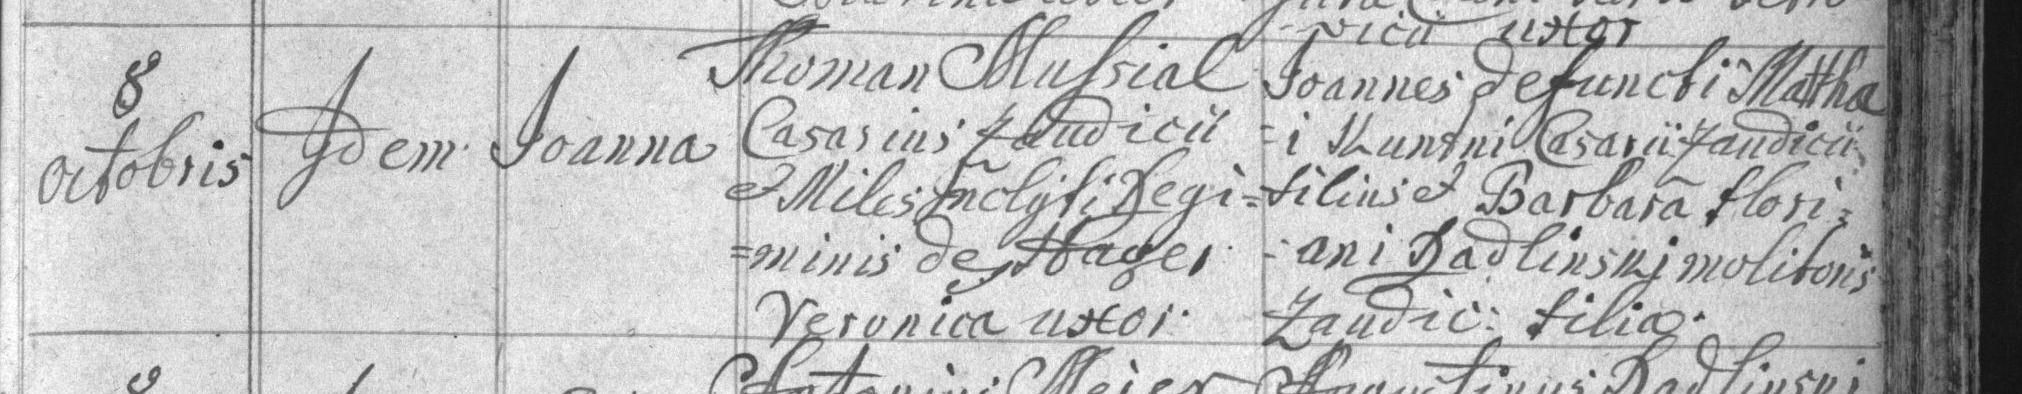 vicii uxor
8
octobris
Idem
Joanna
Thoman Mussial
Casarius Zaudicii
et Miles Inclyti Regi=
=minis de Hager
Veronica uxor
Joannes defuncti Matthæ
=i Kuntni Casarii Zaudicii
filius et Barbara flori=
=ani Radlinsky molitoris
Zaudic: filia.
8
Meier
Augustinus Radlinsky